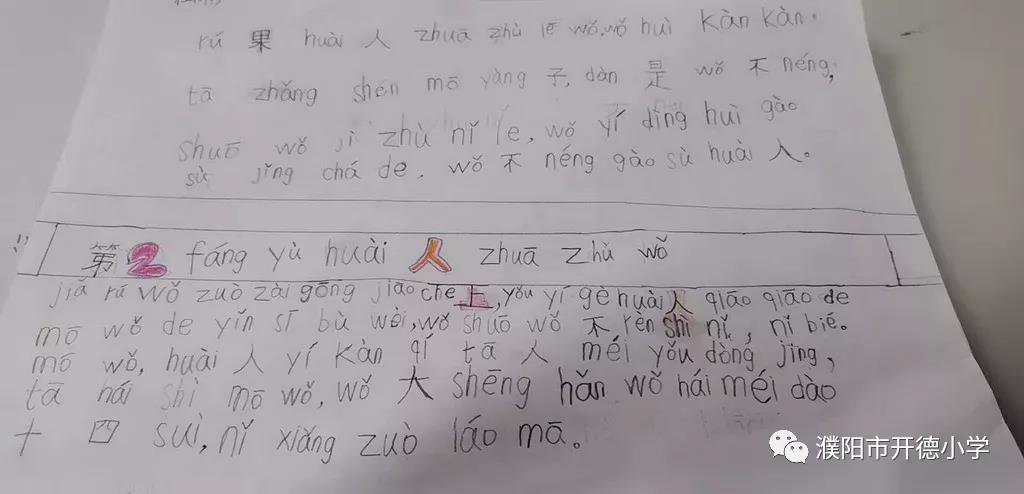 rú 果 huài 人 zhuā zhù le wǒ,wǒ huì kàn kàn.
tā zhǎng shén mō yàng 子,dàn 是 wǒ 不 néng,
shuō wǒ jì zhù nǐ le, wǒ yí dìng huì gào
sù jǐng chá de. wǒ 不 néng gào sù huài 人。
第2 fáng yù huài 人 zhuā zhǔ wǒ
jiā rú wǒ zuò zài gōng jiāo che 上,yǒu yí gè huài 人 qiāo qiāo de
mō wǒ de yǐn sī bù wèi,wǒ shuō wǒ 不 rèn shi nǐ, nǐ bié。
mó wǒ, huài 人 yí kàn qí tā 人 méi yǒu dòng jìng,
tā hái shì mō wǒ, wǒ 大 shēng hǎn wǒ hái méi dào
十 四 suì, nǐ xiǎng zuò láo mā。
濮阳市开德小学